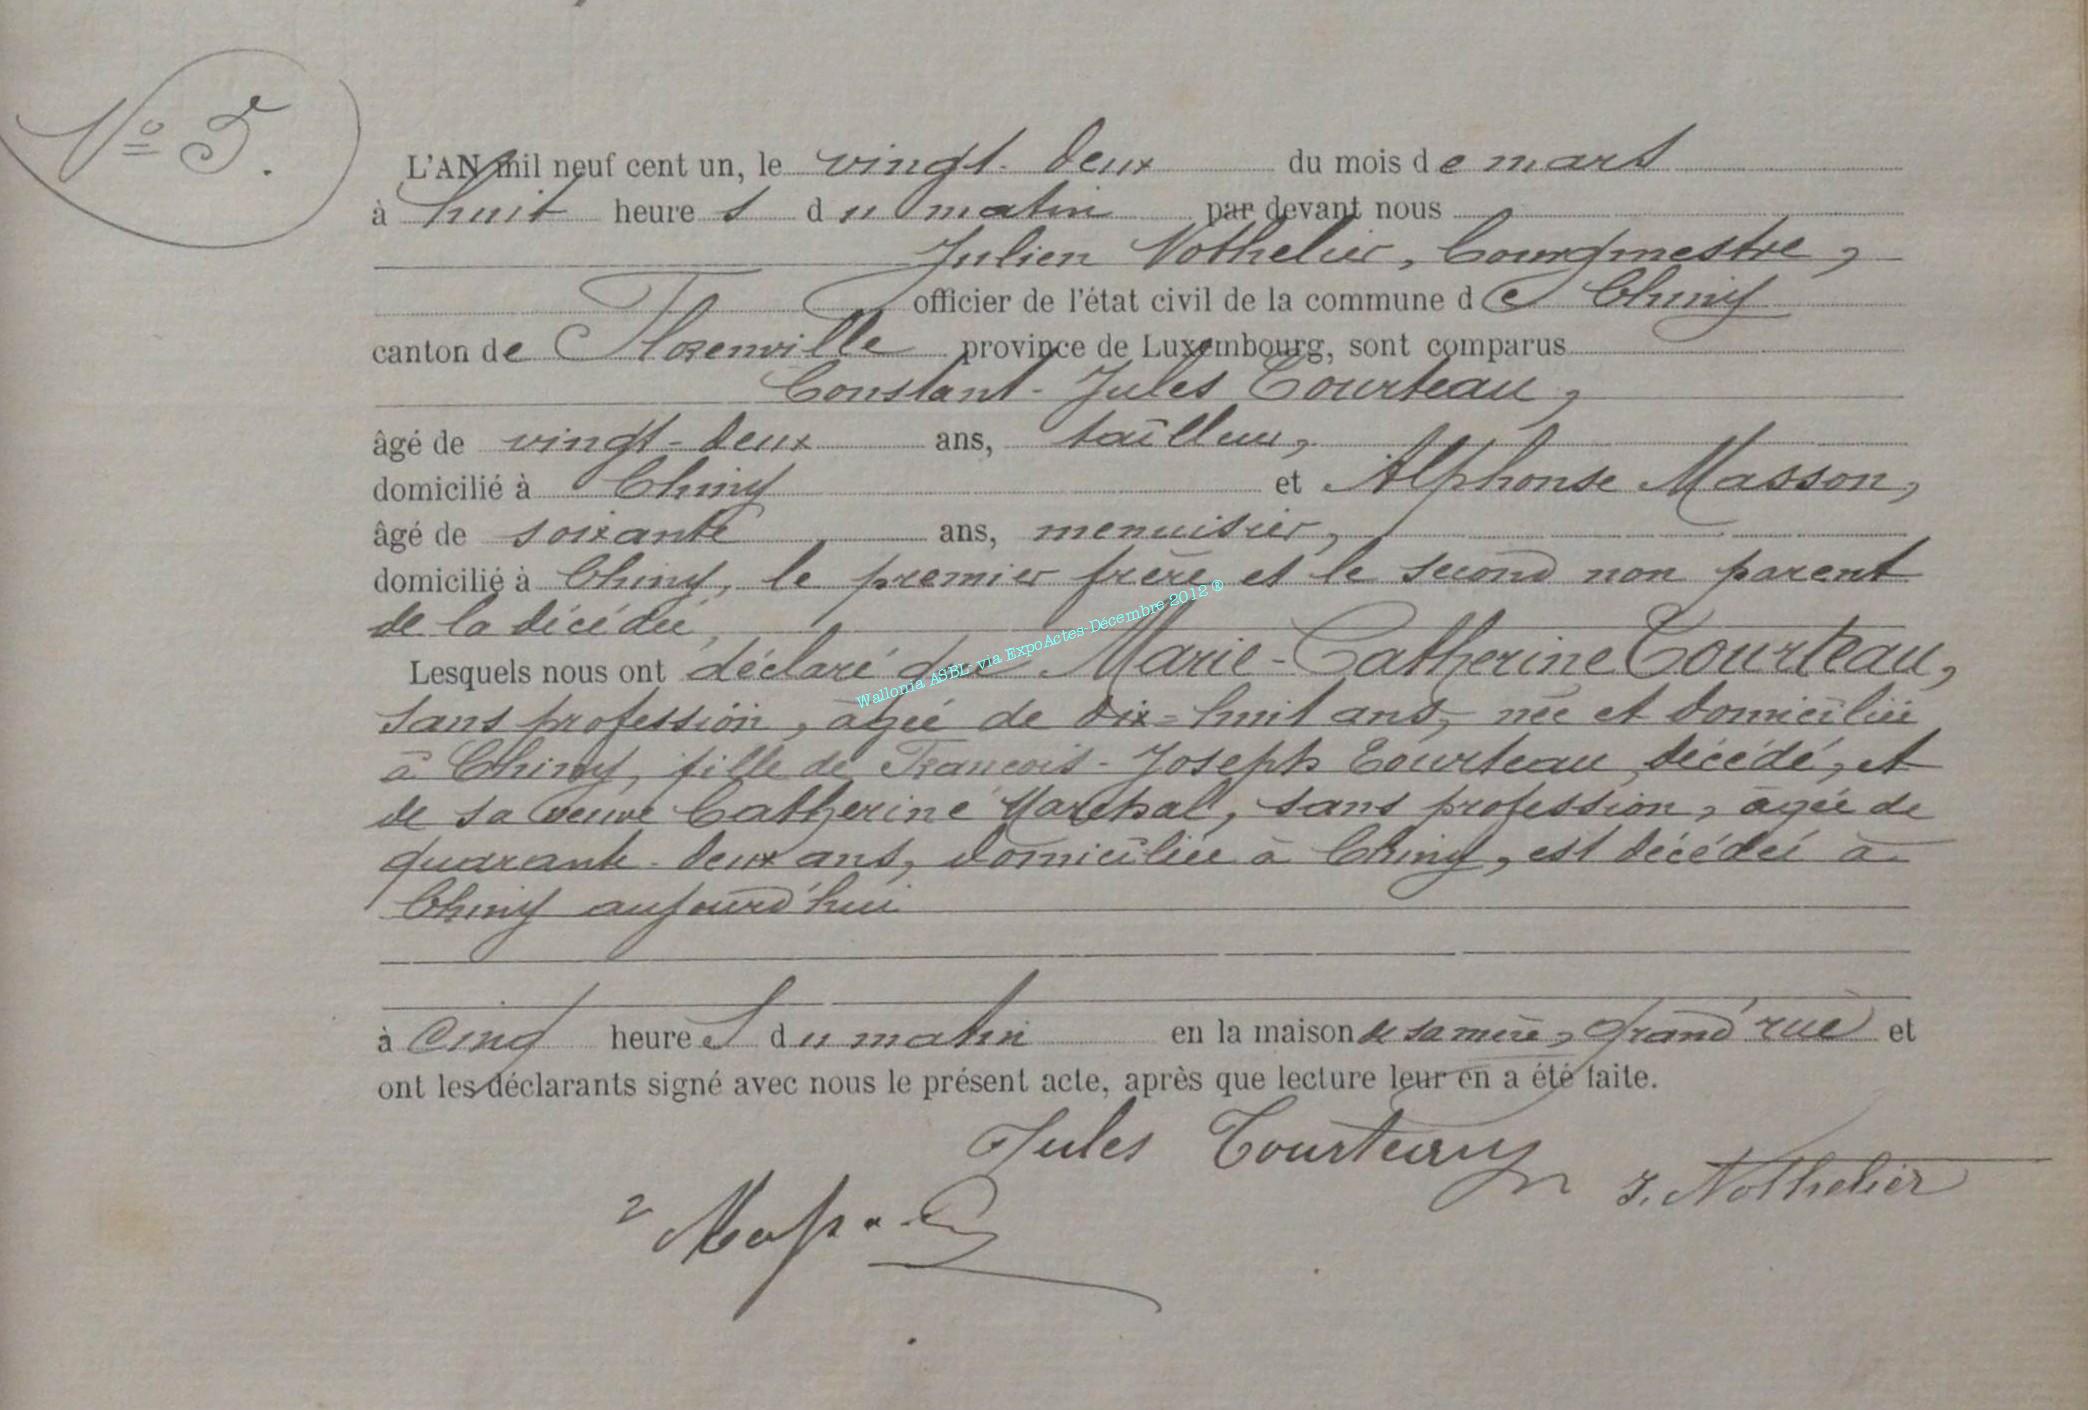 N° 5.
L'AN mil neuf cent un, le vingt-deux du mois de mars
à huit heures du matin par devant nous
Julien Nothelier, Bourgmestre,
officier de l'état civil de la commune de Chiny
canton de Florenville province de Luxembourg, sont comparus
Constant-Jules Tourteau,
âgé de vingt-deux ans, tailleur,
domicilié à Chiny et Alphonse Masson,
âgé de soixante ans, menuisier,
domicilié à Chiny, le premier frère et le second non parent
de la décédée,
Lesquels nous ont déclaré que Marie-Catherine Tourteau,
sans profession, âgée de dix-huit ans, née et domiciliée
à Chiny, fille de François-Joseph Tourteau, décédé, et
de sa veuve Catherine Maréchal, sans profession, âgée de
quarante-deux ans, domiciliée à Chiny, est décédée à
Chiny aujourd'hui
à cinq heures du matin en la maison de sa mère, Grand'rue et
ont les déclarants signé avec nous le présent acte, après que lecture leur en a été faite.
Jules Tourteau
J. Nothelier
Wallonia ASBL- via ExpoActes-Décembre 2012 ®